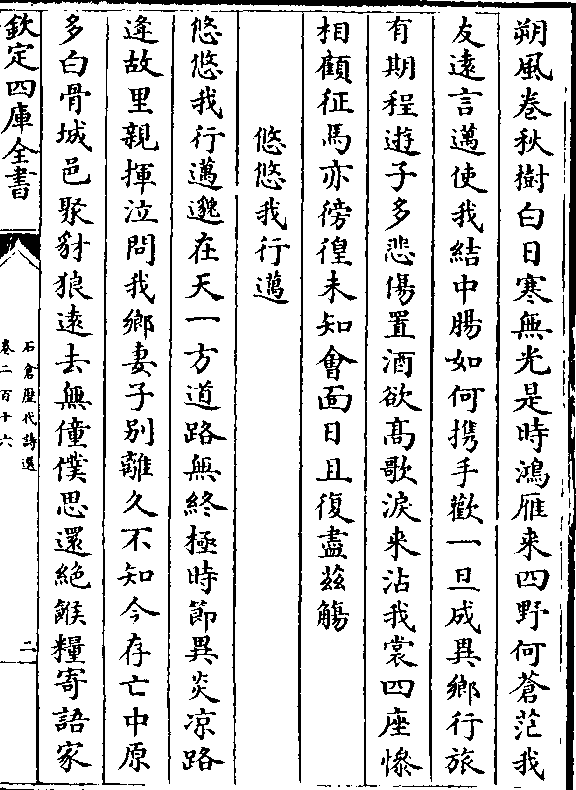 朔風卷秋樹白日寒無光是時鴻雁来四野何蒼茫我
友逺言邁使我結中腸如何携手歡一旦成異鄉行旅
有期程遊子多悲傷置酒欲髙歌淚来沾我裳四座慘
相顧征馬亦徬徨未知會面日且復盡兹觴
悠悠我行邁
悠悠我行邁邈在天一方道路無終極時節異炎凉路
逄故里親揮泣問我鄉妻子别離久不知今存亡中原
多白骨城邑聚豺狼逺去無僮僕思還絶餱糧寄語家
欽定四庫全書
石倉歴代詩選
卷二百十六
二